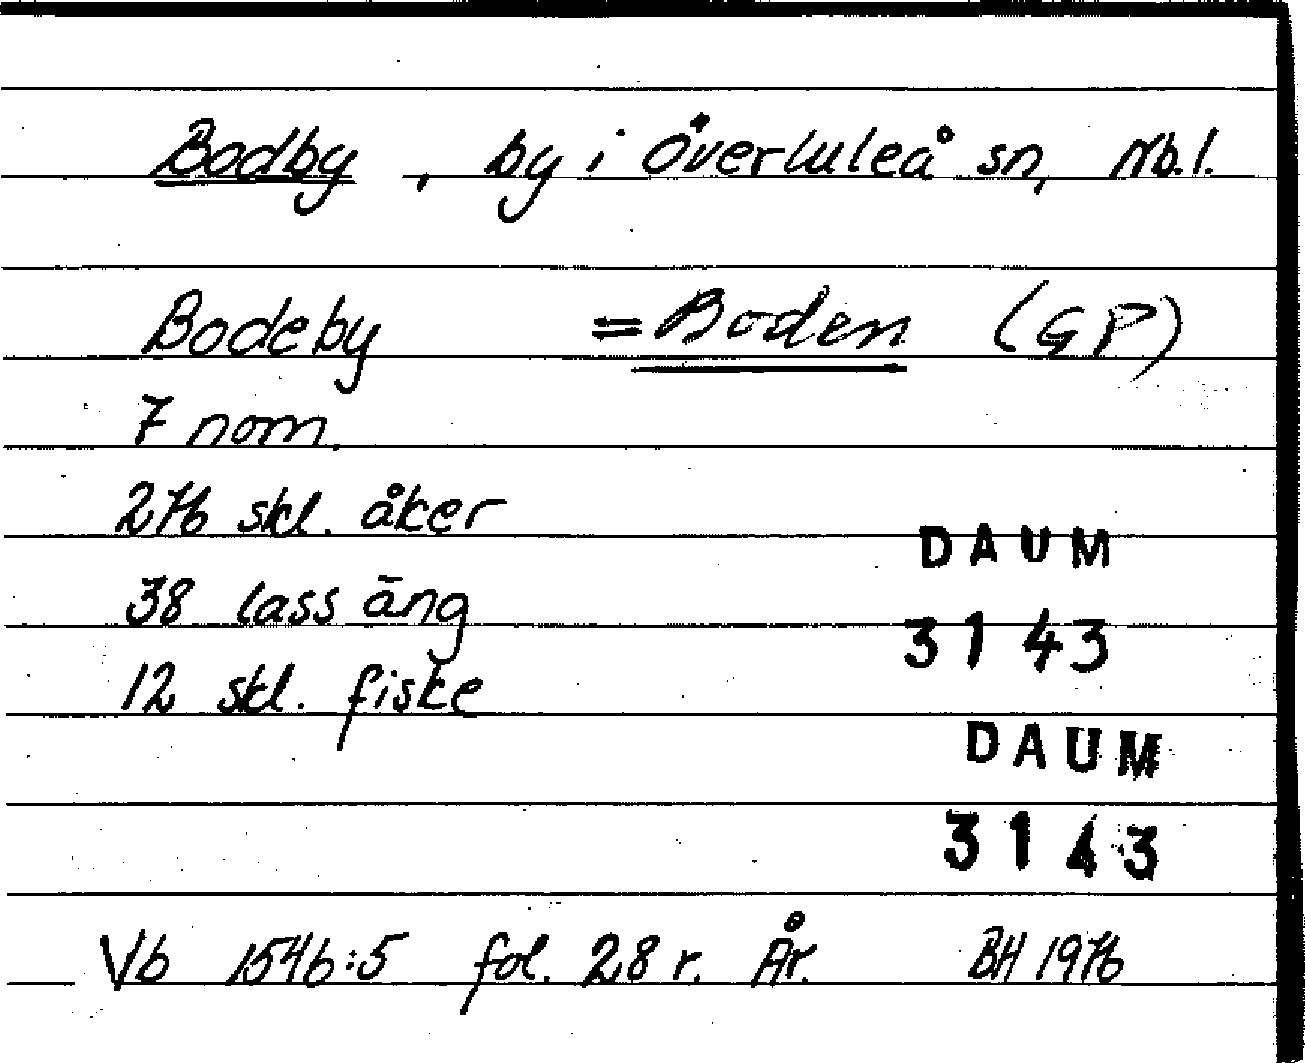 Bodby, by i Överluleå sn, Nb.l.
Bodeby = Boden (GP)
7 nom.
276 skl. åker
38 lass äng
12 skl. fiske
DAUM
3143
DAUM
3143
Vb 1546:5 fol. 28 r. År. BH 1976